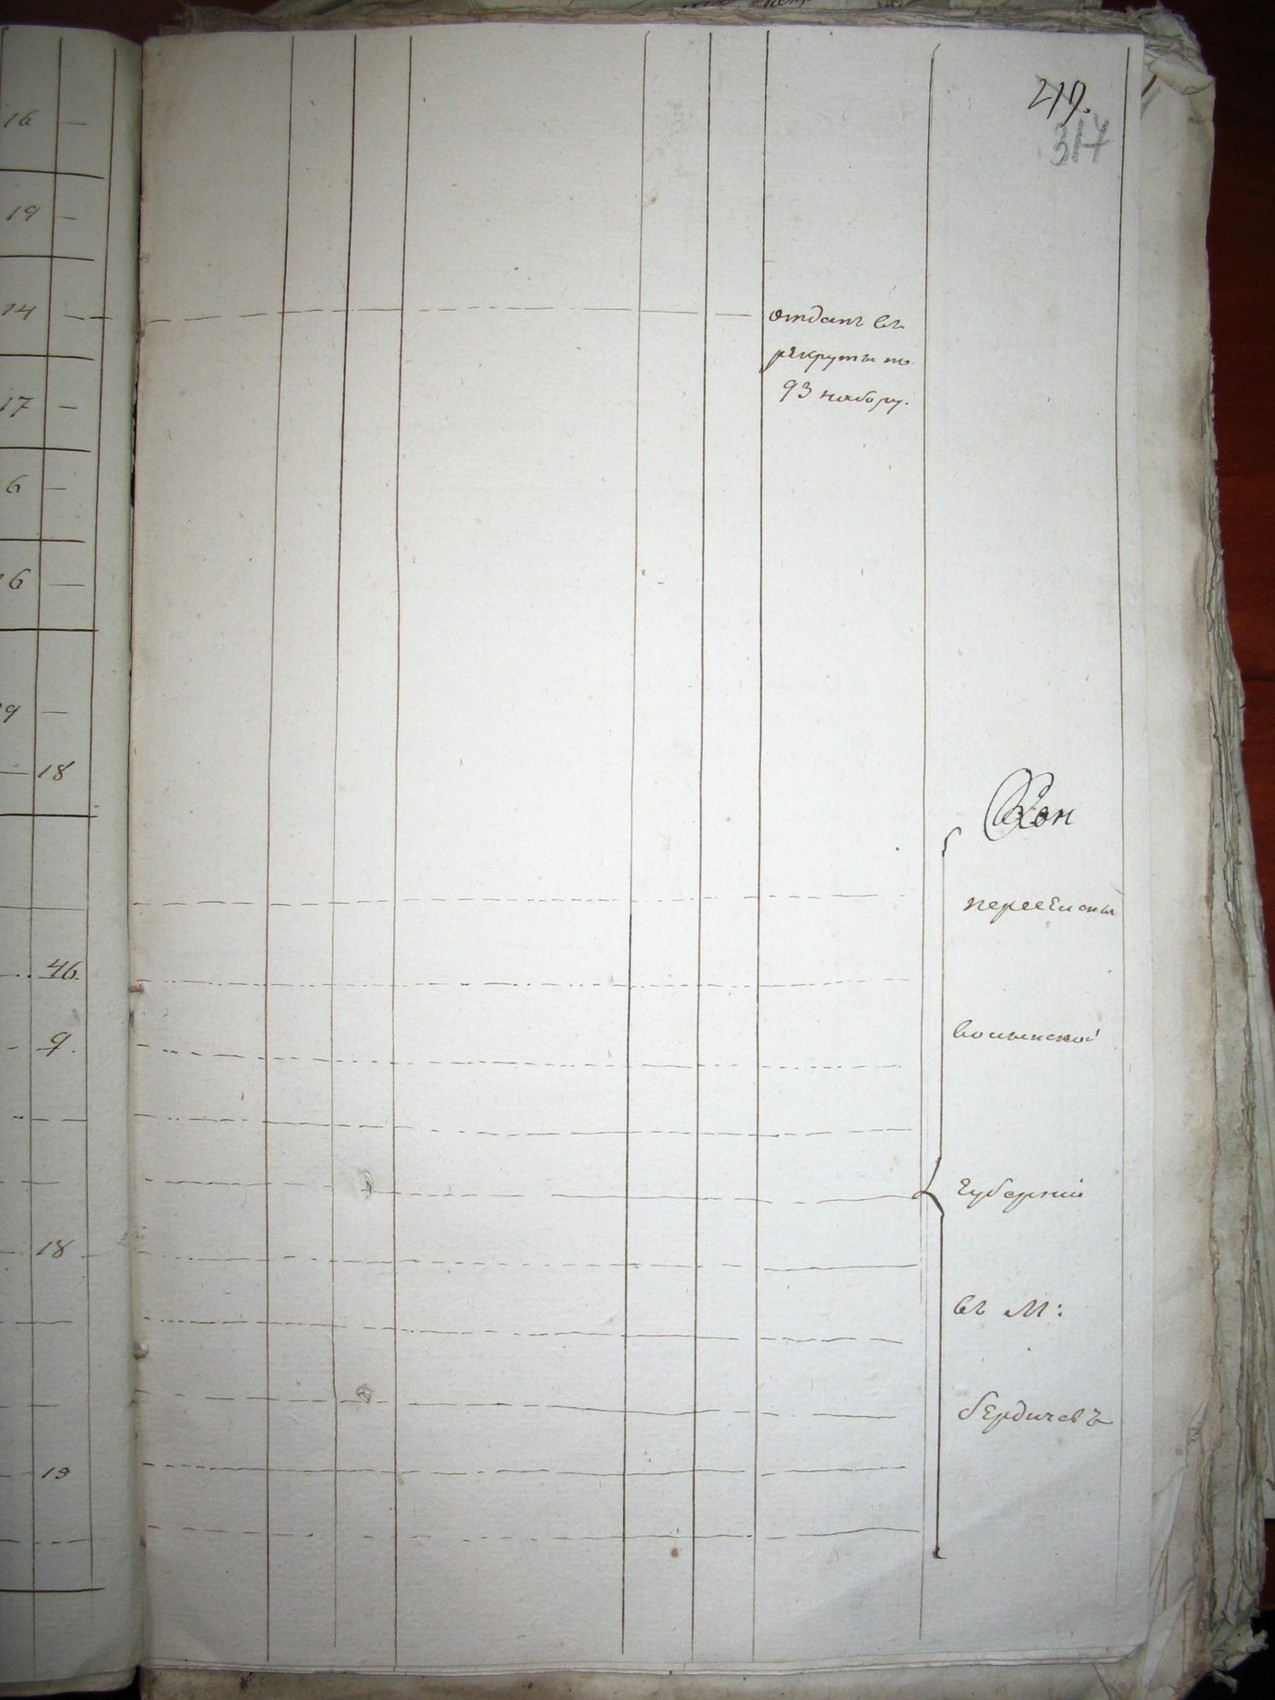 219.
317
16 —
19 —
14 —
17 —
6 —
6 —
9 —
— 18
46.
9.
18
19
отданъ въ
рекруты по
93 набору.
переселены
волынской
губерніи
въ М:
бердичевъ